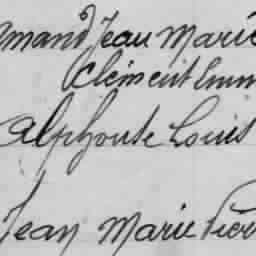 mand Jean Marie
Clément Emm
Alphonse Louis
Jean Marie Pierr